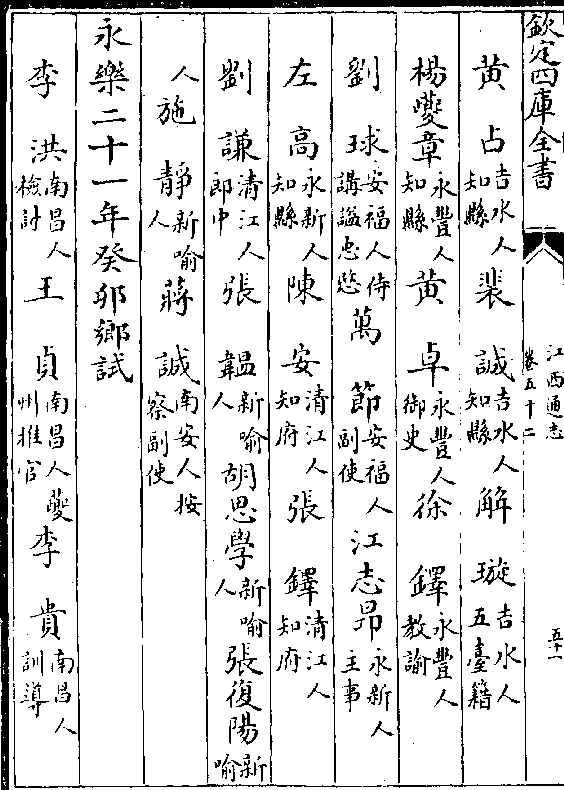 欽定四庫全書
江西通志
卷五十二
五十一
黃占吉水人知縣裴誠吉水人知縣解璇吉水人五臺籍
楊夔章永豐人知縣黃卓永豐人御史徐鐸永豐人教諭
劉球安福人侍講諡忠愍萬節安福人副使江志昂永新人主事
左高永新人知縣陳安清江人知府張鐸清江人知府
劉謙清江人郎中張韞新喻人胡思學新喻人張復陽新喻
人施靜新喻人蔣誠南安人按察副使
永樂二十一年癸卯鄉試
李洪南昌人檢討王貞南昌人夔州推官李貴南昌人訓導